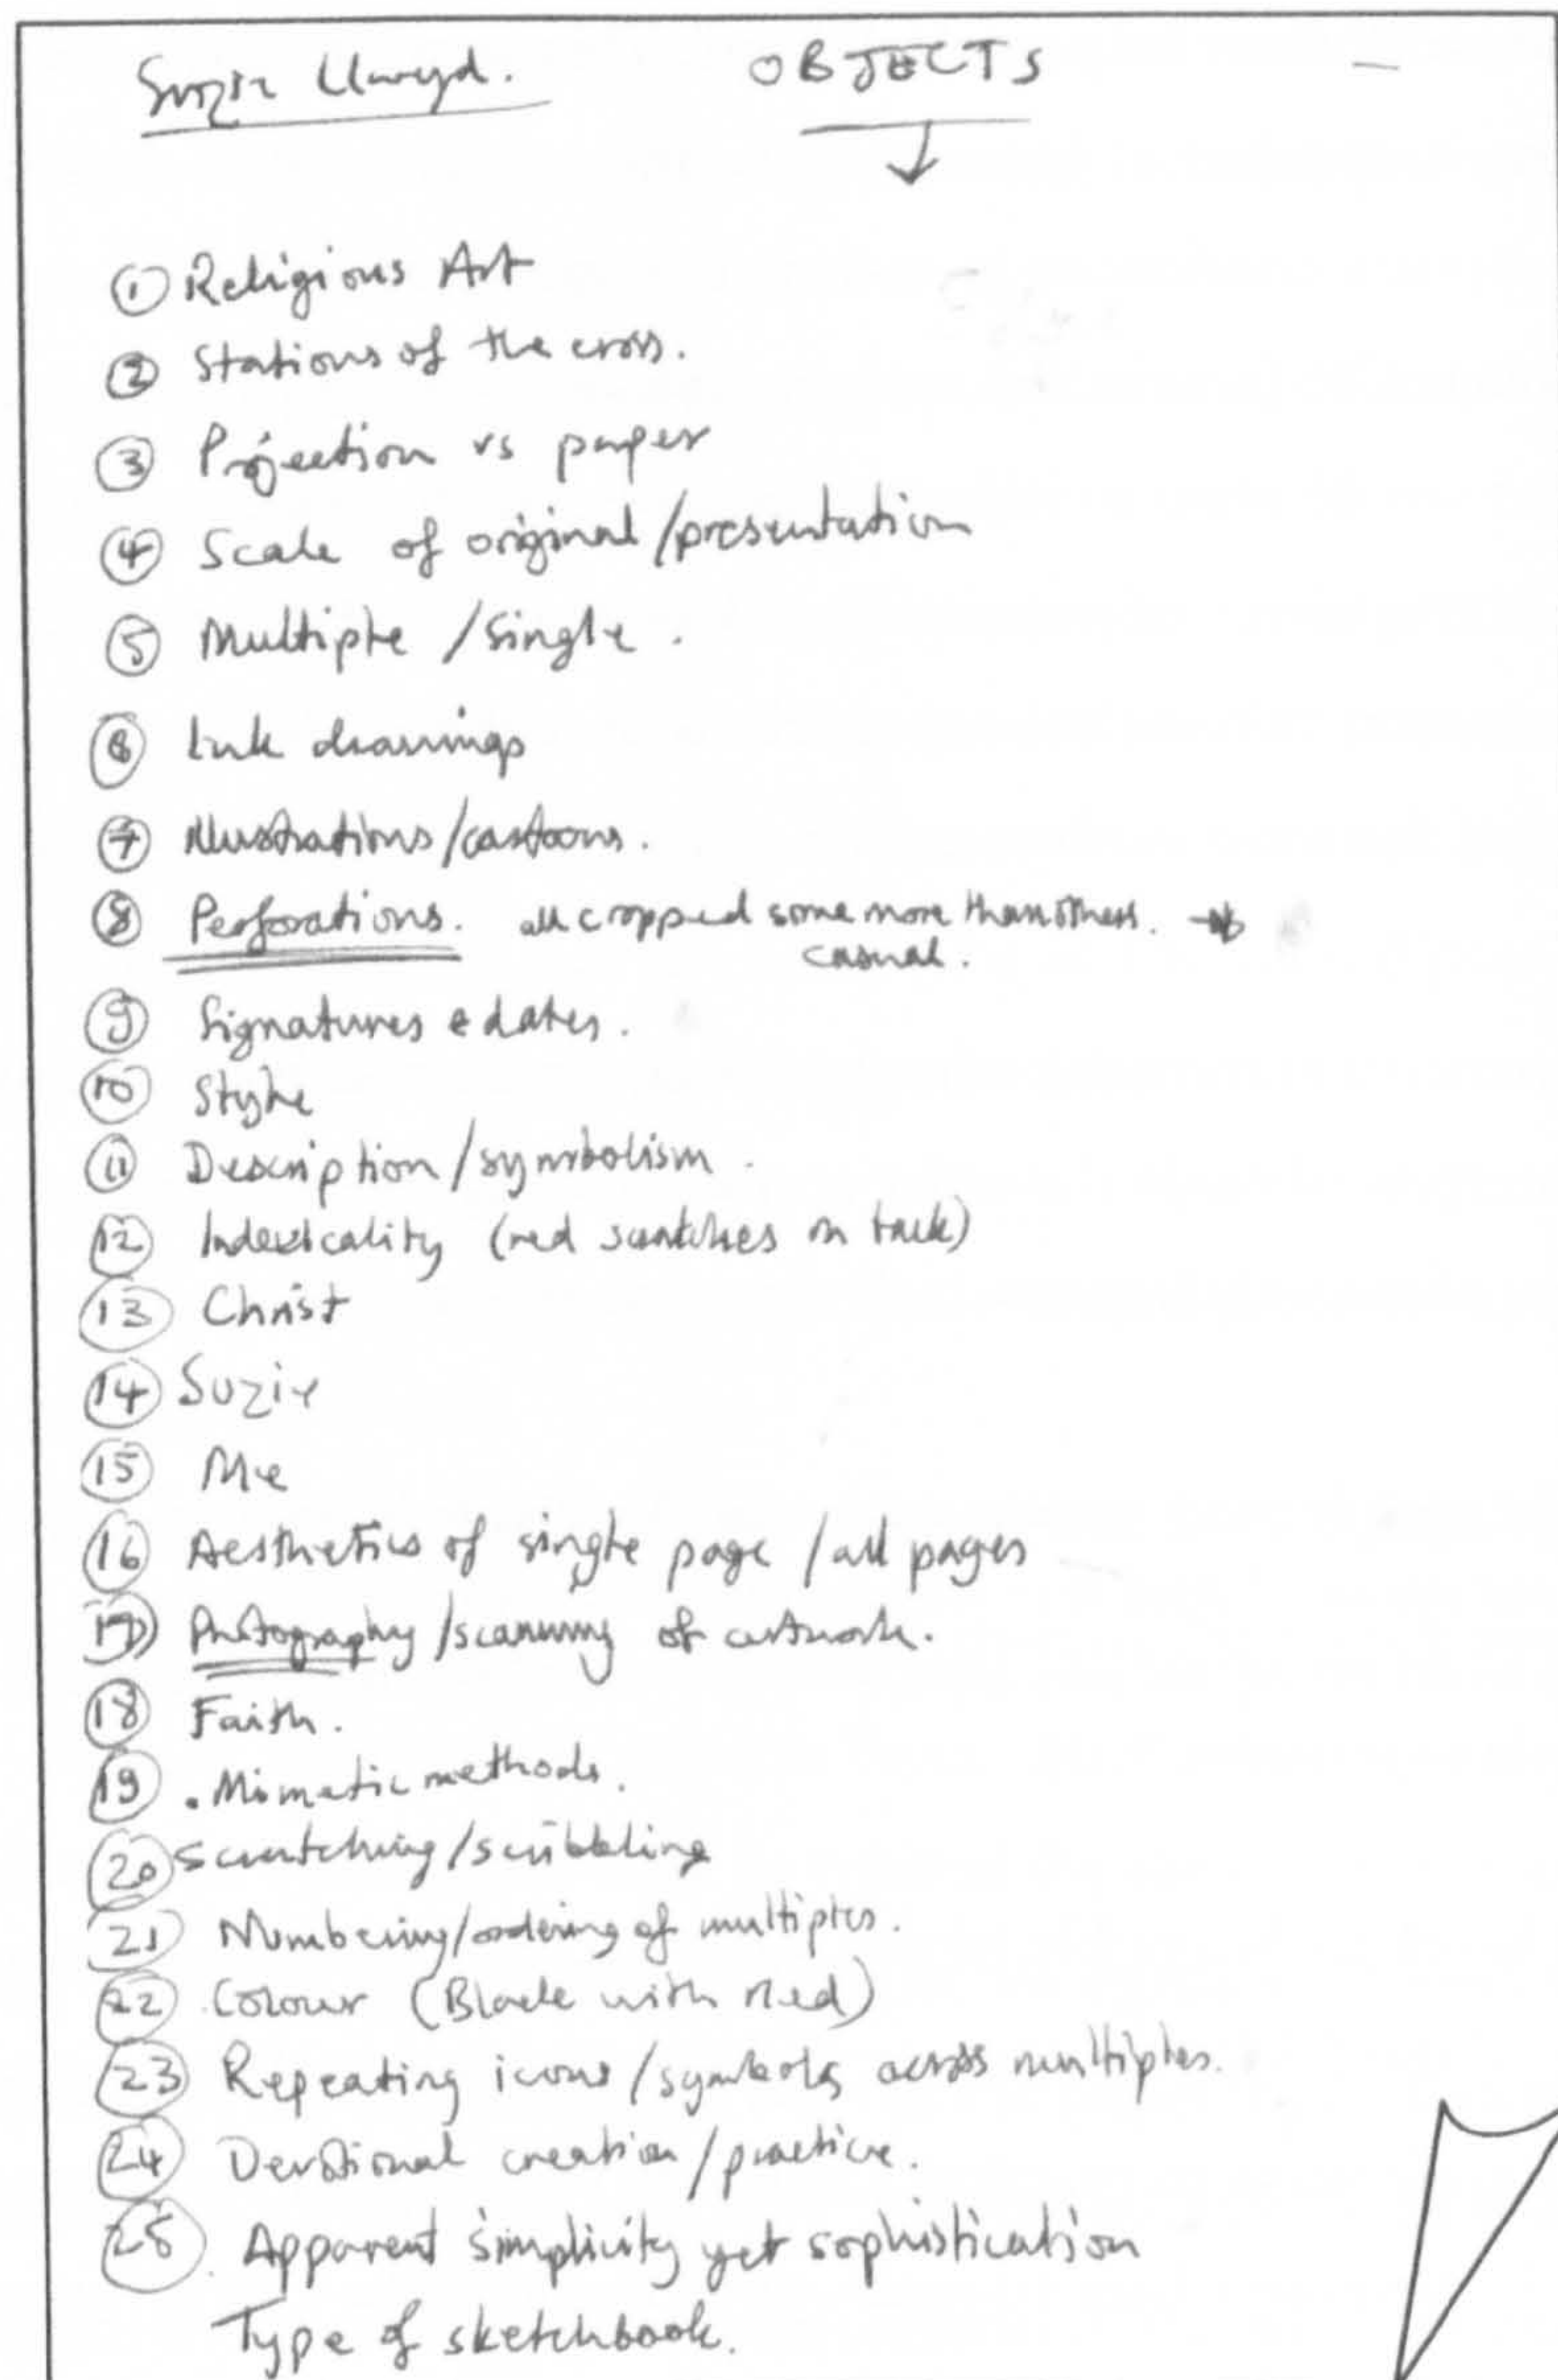 Suzie Llwyd. OBJECTS
① Religious Art
② Stations of the cross.
③ Projection vs paper
④ Scale of original/presentation
⑤ Multiple/Single.
⑥ Ink drawings
⑦ Illustrations/cartoons.
⑧ Perforations. all cropped some more than others. →
casual.
⑨ Signatures & dates.
⑩ Style
⑪ Description/symbolism.
⑫ Indexicality (red scratches on back)
⑬ Christ
⑭ Suzie
⑮ Me
⑯ Aesthetics of single page/all pages
⑰ Photography/scanning of artwork.
⑱ Faith.
⑲ . Mimetic methods.
⑳ Scratching/scribbling
㉑ Numbering/ordering of multiples.
㉒ Colour (Black with Red)
㉓ Repeating icons/symbols across multiples.
㉔ Devotional creation/practice.
㉕ Apparent simplicity yet sophistication
Type of sketchbook.